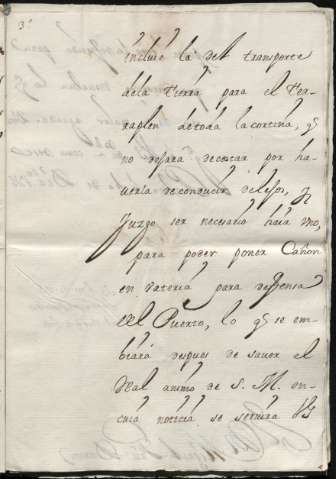 3ª
incluíe la del transporte
dela Tierra para el Ter-
raplen de toda la cortina, q̃
no dejara de costar por ha-
uerla de conducir de lejos, y
Juzgo ser necesario hacia vno,
para poder poner Cañon
en vateria para deffensa
del Puerto, lo q̃ se em-
biará despues de sauer el
Real animo de S. M. en
cuia noticia se seruirá VS